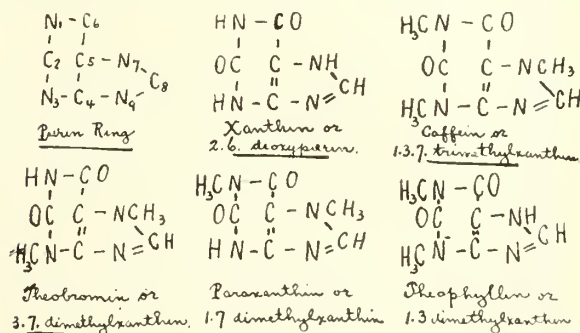 N1 - C6
C2 C5 - N7
C8
N3 - C4 - N9
Purin Ring
HN - CO
OC C - NH
CH
HN - C - N
Xanthin or
2.6. deoxypurin.
H3C N - CO
OC C - NCH3
CH
H3C N - C - N
Caffein or
1.3.7. trimethylxanthin
HN - CO
OC C - NCH3
CH
H3C N - C - N
Theobromin or
3.7. dimethylxanthin.
H3C N - CO
OC C - NCH3
CH
HN - C - N
Paraxanthin or
1.7 dimethylxanthin
H3C N - CO
OC C - NH
CH
H3C N - C - N
Theophyllin or
1.3 dimethylxanthin